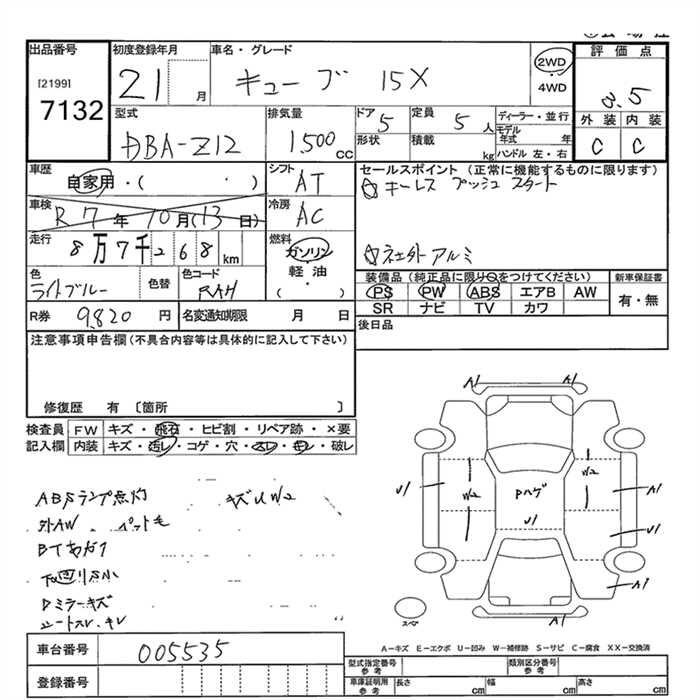 出品番号
[2199]
7132
初度登録年月
21 月
車名・グレード
キューブ 15X
2WD
・
4WD
評価点
3.5
外装 内装
C C
型式
DBA-Z12
排気量
1500 cc
ドア 5
形状
定員 5 人
積載 kg
ディーラー・並行
モデル年式 年
ハンドル 左・右
車歴
自家用・( ・ )
シフト
AT
セールスポイント (正常に機能するものに限ります)
☆キーレス プッシュスタート
☆社外アルミ
車検
R7年10月(13日)
冷房
AC
走行
8万7千268km
燃料
ガソリン
軽油
・
( )
色
ライトブルー
色替
色コード
RAH
装備品 (純正品に限り○をつけてください)
PS PW ABS エアB AW
SR ナビ TV カワ
新車保証書
有・無
R券 9820円
名変通知期限 月 日
後日品
注意事項申告欄(不具合内容等は具体的に記入して下さい)
修復歴 有 〔箇所 〕
検査員記入欄
FW キズ・飛石・ヒビ割・リペア跡・×要
内装 キズ・汚レ・コゲ・穴・スレ・キレ・破レ
ABSランプ点灯 キズUW2
外AW ペット毛
下回りS小
Dミラーキズ
シートスレ・キレ
A1 A1
U1 W2 Pハゲ W2 A1
U1 U1
A1
スペア
A1
A-キズ E-エクボ U-凹み W-補修跡 S-サビ C-腐食 XX-交換済
車台番号 005535
登録番号
型式指定番号
参考
類別区分番号
参考
車庫証明用
参考
長さ cm 幅 cm 高さ cm